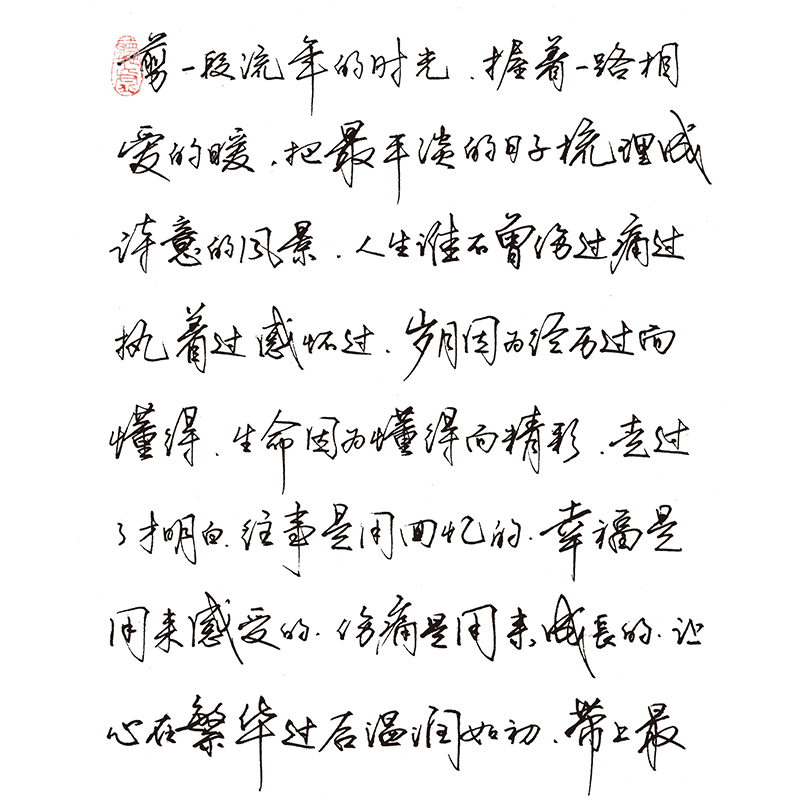 剪一段流年的时光，握着一路相
爱的暖，把最平淡的日子梳理成
诗意的风景，人生谁不曾伤过痛过
执着过感怀过，岁月因为经历过而
懂得，生命因为懂得而精彩，走过
了才明白，往事是用回忆的，幸福是
用来感受的，伤痛是用来成長的，让
心在繁华过后温润如初，带上最